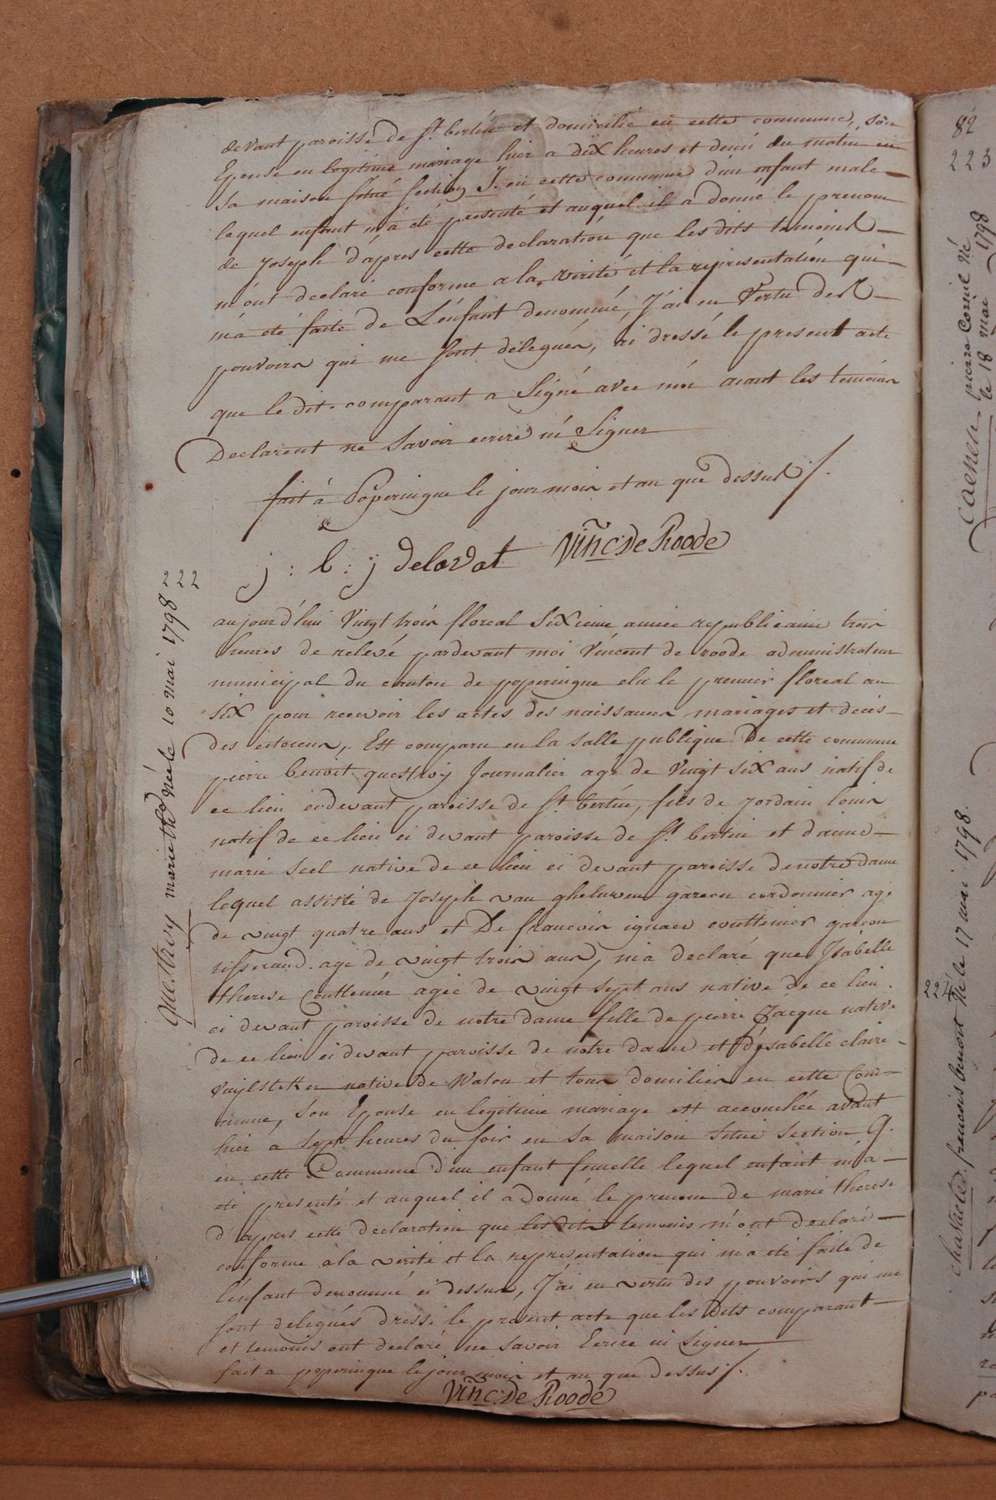 devant paroisse de St. bertin et domicilié en cette commune, son
Epouse en legitime mariage hier a dix heures et demi du matin en
Sa maison situé section J. en cette commune d'un enfant male
lequel enfant m'a été presenté et auquel il a donné le prenom
de Joseph d'apres cette declaration que les dits temoins
m'ont declaré conforme a la verité et la representation qui
m'a été faite de L'enfant denommé, J'ai en Vertu des
pouvoirs qui me sont délegués, ai dressé le present acte
que le dit comparant a Signé avec moi aiant les temoins
Declarent ne Savoir ecrire ni Signer
fait à Poperingue le jour mois et an que dessus /.
j : b : j delavat Vinc: De Roode
222
quaethvy marie thé née le 10 mai 1798
aujourd'hui Vingt trois floreal Sixieme année republicaine trois
heures de relevé pardevant moi Vincent de roode administrateur
municipal du canton de poperingue elu le premier floreal an
Six pour recevoir les actes des naissances mariages et decès
des citoiens, Est comparu en la salle publique De cette commune
pierre benoit questroij Journalier age de Vingt six ans natif de
ce lieu cidevant paroisse de St. bertin, fils de Jordain louis
natif de ce lieu ci devant paroisse de St bertin et d'anne
marie Scel native de ce lieu ci devant paroisse de notre dame
lequel assisté de Joseph van gheluwen garcon cordonnier agé
de vingt quatre ans et De francois ignace couttenier garcon
tisserand agé de vingt trois ans, m'a declaré que Isabelle
therese Couttenier agée de vingt sept ans native de ce lieu
ci devant paroisse de notre dame fille de pierre Jacque native
de ce lieu ci devant paroisse de notre dame et d'isabelle claire
vuijlsteker native de Watou et tous domiciliés en cette Com-
mune, Son Epouse en legitime mariage est accouchée avant
hier a sept heures du soir en sa maison situé section G.
en cette Commune d'un enfant femelle lequel enfant m'a
été presenté et auquel il a donné le prenom de marie therese
d'apres cette declaration que les dits temoins m'ont declaré
conforme à la verité et la representation qui m'a été faite de
l'enfant denommé ci dessus, J'ai en vertu des pouvoirs qui me
sont delegués dressé le present acte que les dits comparant
et temoins ont declaré ne savoir Ecrire ni Signer
fait a poperingue le jour mois et an que dessus /.
Vinc: De Roode
82
223
Caenen pierre Cornil né
le 18 mai 1798
224
françois benoit né le 17 mai 1798.